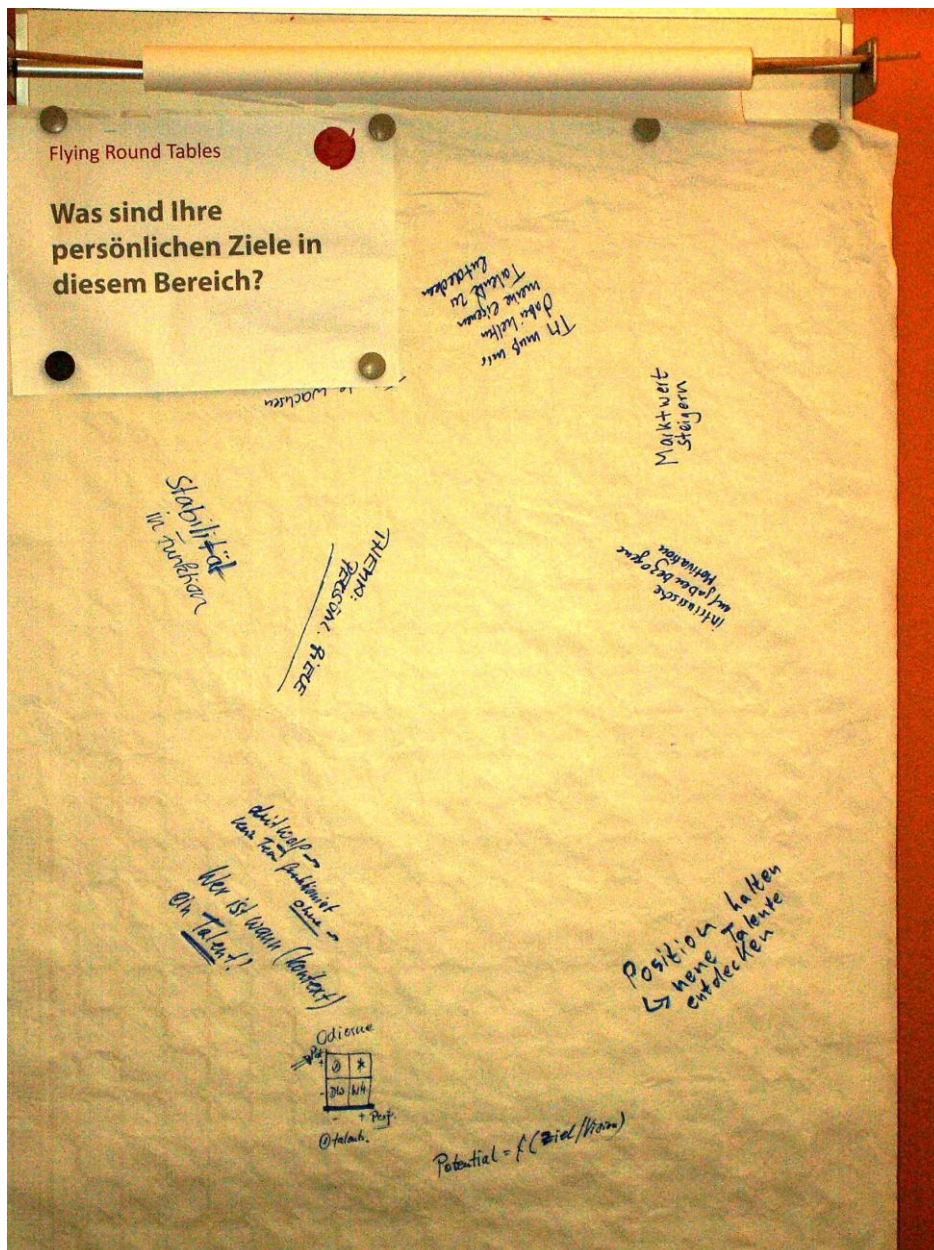 Flying Round Tables
Was sind Ihre
persönlichen Ziele in
diesem Bereich?
TM muß mir
dabei helfen
meine eigenen
Talente zu
entdecken
wachsen
Marktwert
steigern
Stabilität
in Funktion
THEMA:
PERSÖNL. ZIELE
intrinsische
aufgabenbezogene
Motivation
kein Team funktioniert
ohne
Wer ist wann (Kontext)
ein Talent?
Position halten
↳ neue Talente
entdecken
Odiorne
+ ? *
- DW WH
- + Perf.
Potential = f (Ziel/Vision)